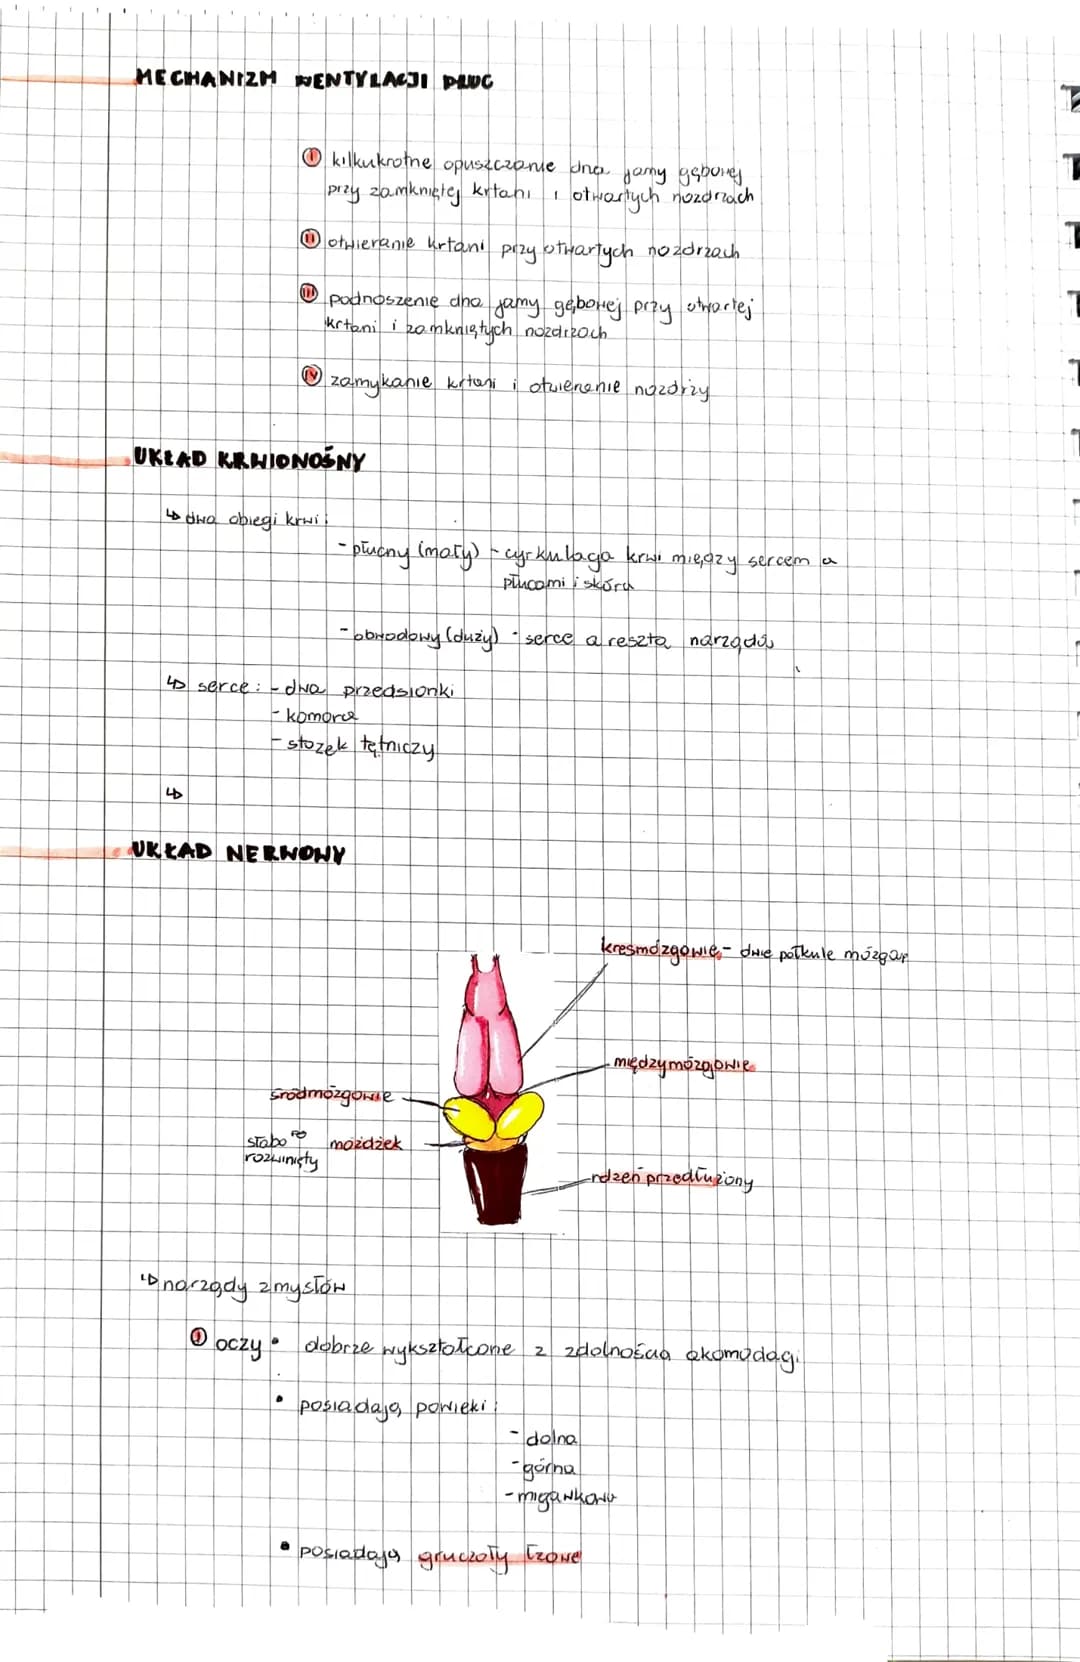 MECHANIZM WENTYLACJI PŁUC
I kilkukrotne opuszczanie dna jamy gębowej
przy zamkniętej krtani i otwartych nozdrzach
II otwieranie krtani przy otwartych nozdrzach
III podnoszenie dna jamy gębowej przy otwartej
krtani i zamkniętych nozdrzach
IV zamykanie krtani i otwieranie nozdrzy
UKŁAD KRWIONOŚNY
↳ dwa obiegi krwi:
- płucny (mały) - cyrkulacja krwi między sercem a
płucami i skórą
- obwodowy (duży) - serce a reszta narządów
↳ serce: - dwa przedsionki
- komora
- stożek tętniczy
↳
UKŁAD NERWOWY
kresmózgowie - dwie półkule mózgu
międzymózgowie
śródmózgowie
słabo móżdżek
rozwinięty
rdzeń przedłużony
↳ narządy zmysłów
I oczy • dobrze wykształcone z zdolnością akomodacji
• posiadają powieki:
- dolna
- górna
- migawkowa
• posiadają gruczoły łzowe